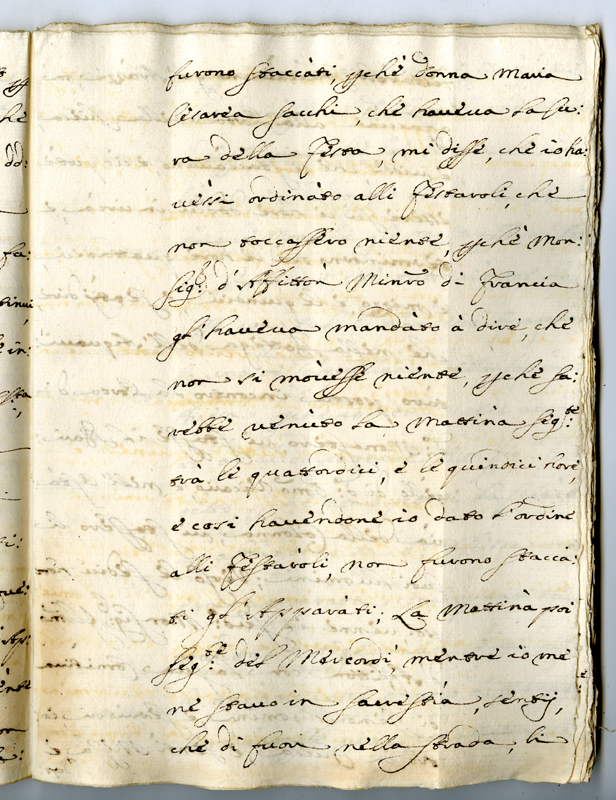 furono staccati, p̱chè donna Maria
Cesarea Sacchi, che haueua la Cu:
ra della Festa, mi disse, che io ha:
uessi ordinato alli Festaroli, che
non toccassero niente, p̱chè Mon:
sig.r d'Affitton Minrõ di Francia
gl'haueua mandato à dire, che
non si mouesse niente, p̱chè sa:
rebbe uenuto la Mattina seg.te
trà le quattordici, e le quindici hore,
e cosi hauendone io dato l'ordine
alli Festaroli, non furono stacca:
ti gl'Apparati; La Mattina poi
seg.te del Mercordì, mentre io me
ne stauo in sacrestia, sentij,
che di fuori nella strada, li